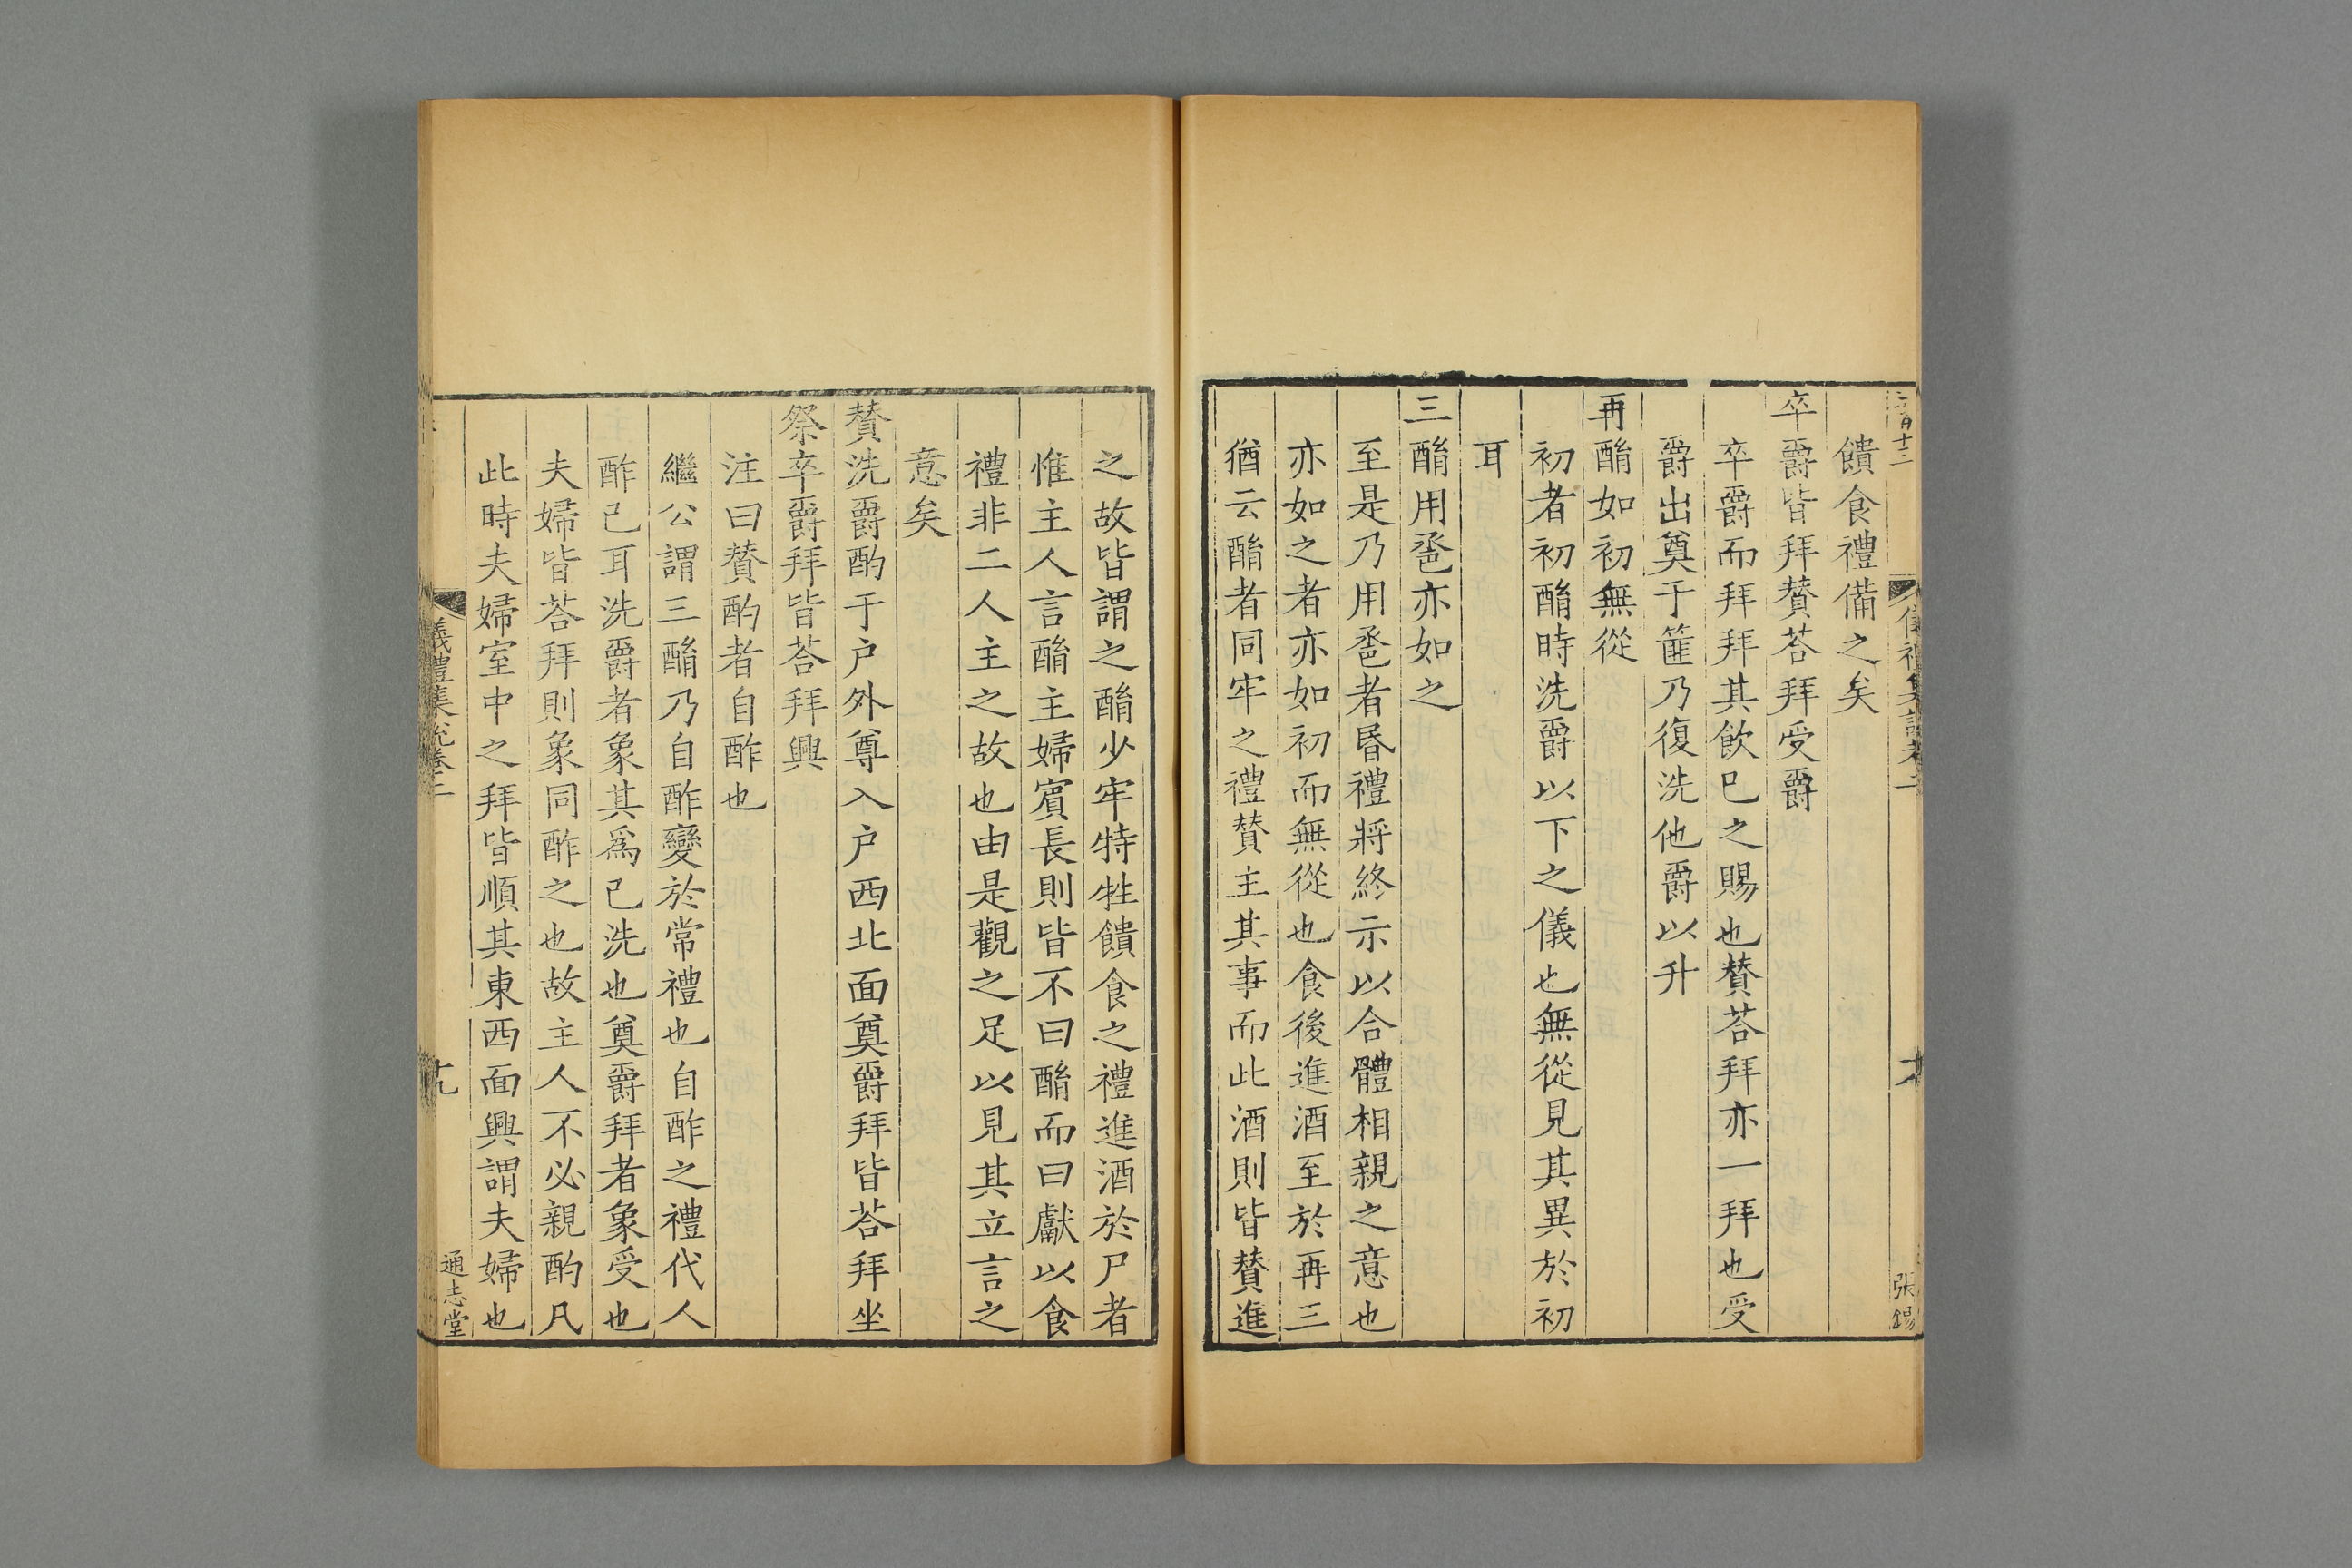 饋食禮備之矣
卒爵皆拜贊荅拜受爵
卒爵而拜拜其飲已之賜也贊荅拜亦一拜也受
爵出奠于篚乃復洗他爵以升
再酳如初無從
初者初酳時洗爵以下之儀也無從見其異於初
耳
三酳用卺亦如之
至是乃用卺者昬禮將終示以合體相親之意也
亦如之者亦如初而無從也食後進酒至於再三
猶云酳者同牢之禮贊主其事而此酒則皆贊進
張錫
之故皆謂之酳少牢特牲饋食之禮進酒於尸者
惟主人言酳主婦賓長則皆不曰酳而曰獻以食
禮非二人主之故也由是觀之足以見其立言之
意矣
贊洗爵酌于户外尊入户西北面奠爵拜皆荅拜坐
祭卒爵拜皆荅拜興
注曰贊酌者自酢也
繼公謂三酳乃自酢變於常禮也自酢之禮代人
酢已耳洗爵者象其爲已洗也奠爵拜者象受也
夫婦皆荅拜則象同酢之也故主人不必親酌凡
此時夫婦室中之拜皆順其東西面興謂夫婦也
儀禮集說卷二
十九
通志堂